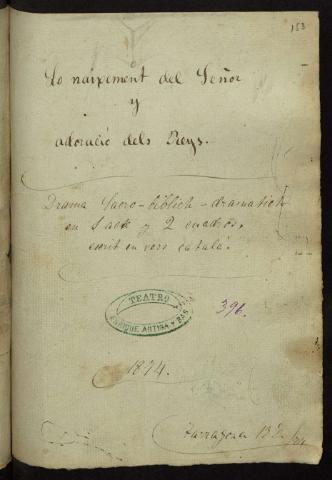 153
Lo naixement del Señor
y
adoració dels Reys.
Drama Sacro-biblich-dramatich
en 1 acte y 2 cuadros,
escrit en vers catalá.
TEATRO
ENRIQUE ARTIGA Y
396.
1874.
Tarragona 13